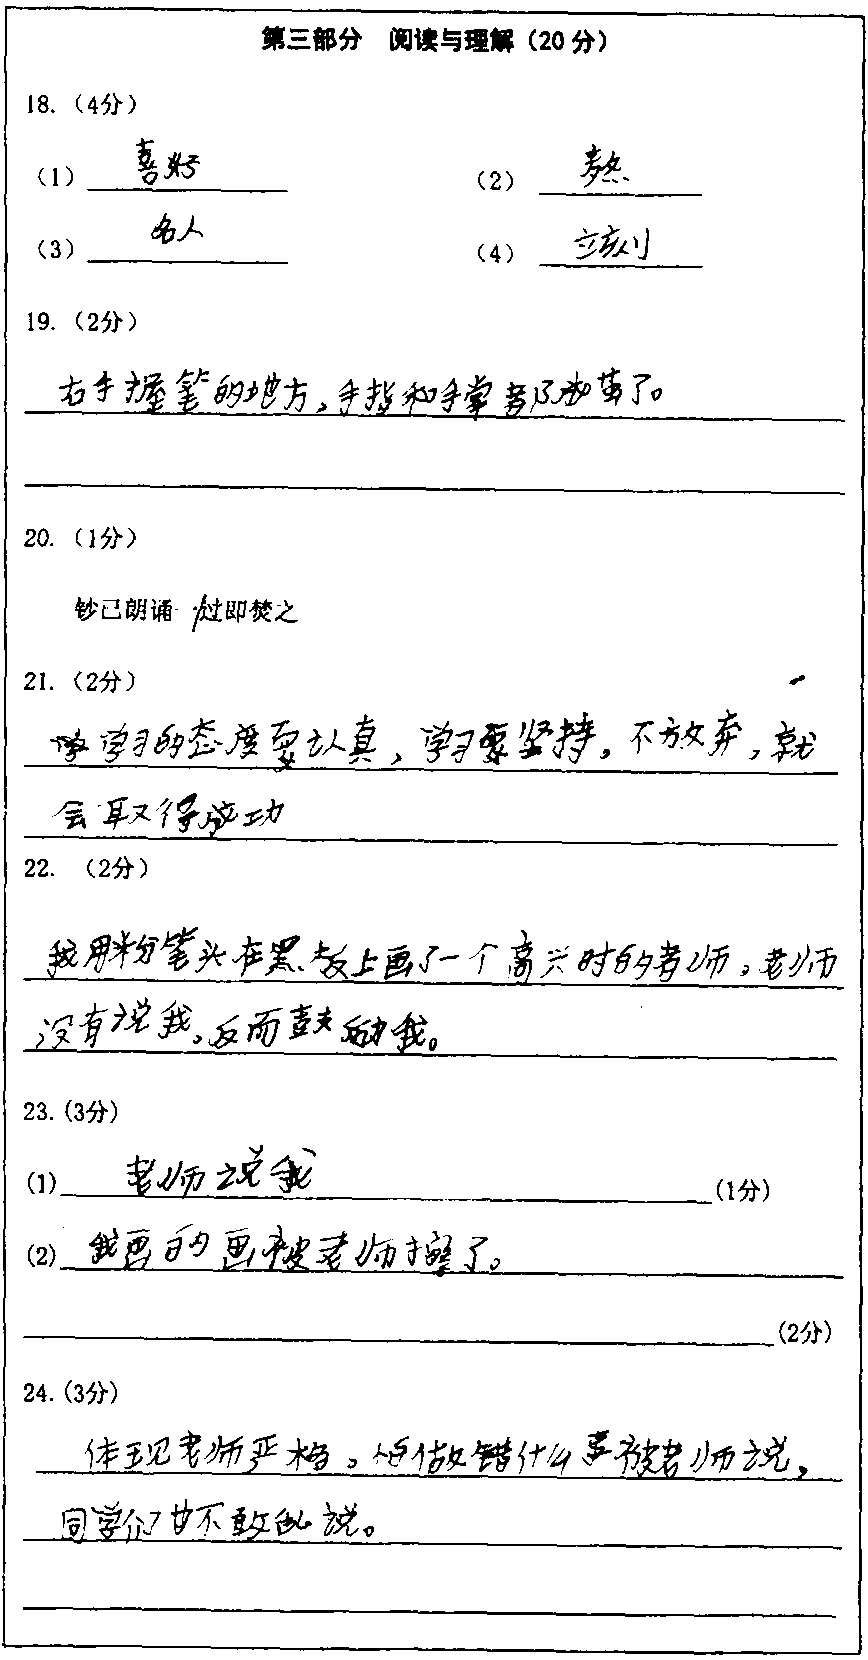 第三部分 阅读与理解（20分）
18.（4分）
（1）喜好 （2）熬
（3）名人 （4）立刻
19.（2分）
右手握笔的地方，手指和手掌都成茧了。
20.（1分）
钞已朗诵 /过即焚之
21.（2分）
学习的态度要认真，学习要坚持，不放弃，就
会取得成功
22. （2分）
我用粉笔头在黑板上画了一个高兴时的老师，老师
没有说我，反而鼓励我。
23.(3分)
(1) 老师说我 (1分)
(2) 我画的画被老师擦了。
(2分)
24.(3分)
体现老师严格。怕做错什么事被老师说，
同学们甘不敢乱说。